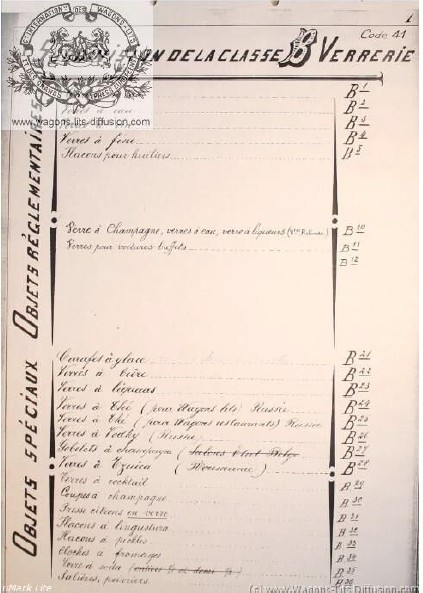 1
Code 41
ION DE LA CLASSE B VERRERIE
INTERNATIONALE DES WAGONS-LITS
www.wagons-lits-diffusion.com
OBJETS RÉGLEMENTAIRES
B 1
à eau B 2
B 3
Verres à B 4
Flacons pour huiliers B 5
Verre à Champagne, verres à eau, verre à liqueurs B 10
Verres pour voitures buffets B 11
B 12
OBJETS SPÉCIAUX
Carafes à glace B 21
Verres à bière B 22
Verres à liqueurs B 23
Verres à Thé (pour Wagons lits) Russie B 24
Verres à Thé (pour Wagons restaurants) Russie B 25
Verres à Vodky (Russie) B 26
Gobelets à champagne (Salons État Belge B 27
Verres à Tzuica (Roumanie) B 28
Verres à cocktail B 29
Coupes à champagne B 30
Presse citrons en verre B 31
Flacons à Angustura B 32
Flacons à pickles B 33
Cloches à fromages B 34
Verre à soda B 35
Salières, poivriers B 36
iMark Lite
(c) www.Wagons-Lits-Diffusion.com